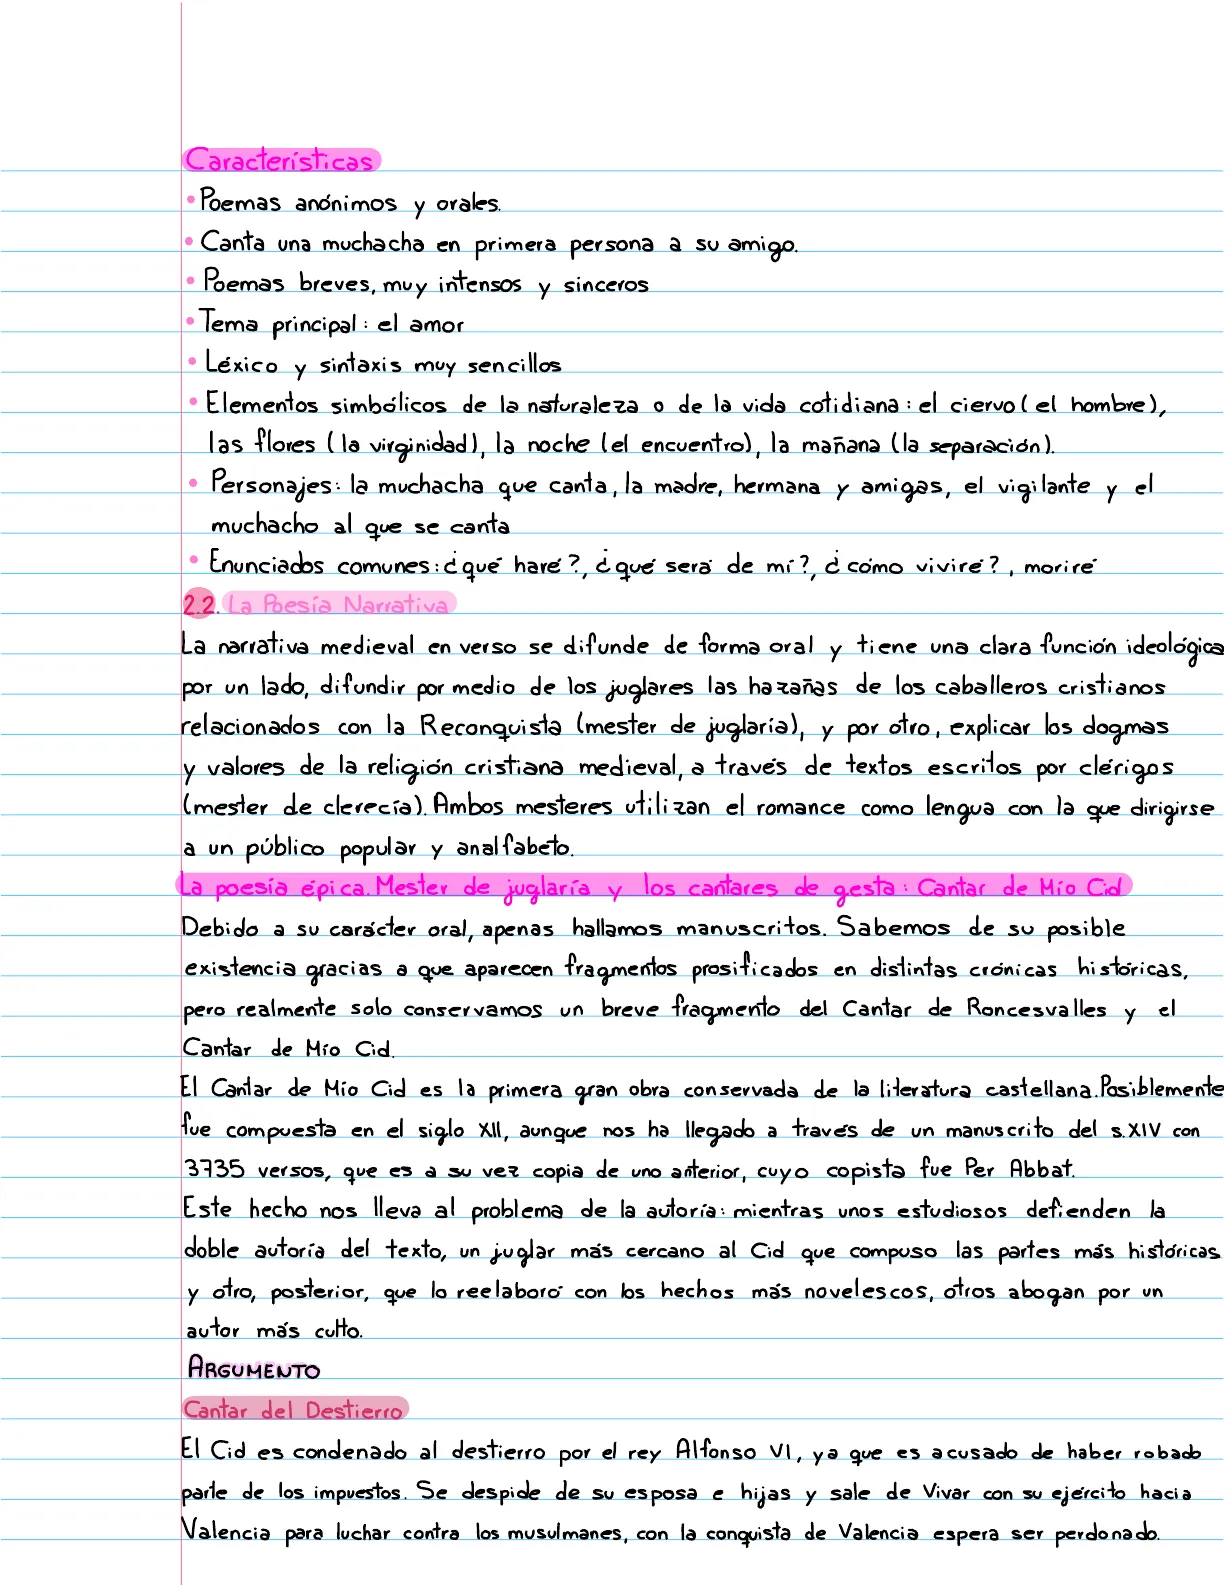 Características
• Poemas anónimos y orales.
• Canta una muchacha en primera persona a su amigo.
• Poemas breves, muy intensos y sinceros
• Tema principal: el amor
• Léxico y sintaxis muy sencillos
• Elementos simbólicos de la naturaleza o de la vida cotidiana: el ciervo (el hombre),
las flores (la virginidad), la noche (el encuentro), la mañana (la separación).
• Personajes: la muchacha que canta, la madre, hermana y amigas, el vigilante y el
muchacho al que se canta
• Enunciados comunes: ¿qué haré?, ¿qué será de mí?, ¿cómo viviré?, moriré
2.2. La Poesía Narrativa
La narrativa medieval en verso se difunde de forma oral y tiene una clara función ideológica
por un lado, difundir por medio de los juglares las hazañas de los caballeros cristianos
relacionados con la Reconquista (mester de juglaría), y por otro, explicar los dogmas
y valores de la religión cristiana medieval, a través de textos escritos por clérigos
(mester de clerecía). Ambos mesteres utilizan el romance como lengua con la que dirigirse
a un público popular y analfabeto.
La poesía épica. Mester de juglaría y los cantares de gesta: Cantar de Mío Cid
Debido a su carácter oral, apenas hallamos manuscritos. Sabemos de su posible
existencia gracias a que aparecen fragmentos prosificados en distintas crónicas históricas,
pero realmente solo conservamos un breve fragmento del Cantar de Roncesvalles y el
Cantar de Mío Cid.
El Cantar de Mío Cid es la primera gran obra conservada de la literatura castellana. Posiblemente
fue compuesta en el siglo XII, aunque nos ha llegado a través de un manuscrito del s.XIV con
3735 versos, que es a su vez copia de uno anterior, cuyo copista fue Per Abbat.
Este hecho nos lleva al problema de la autoría: mientras unos estudiosos defienden la
doble autoría del texto, un juglar más cercano al Cid que compuso las partes más históricas
y otro, posterior, que lo reelaboró con los hechos más novelescos, otros abogan por un
autor más culto.
ARGUMENTO
Cantar del Destierro
El Cid es condenado al destierro por el rey Alfonso VI, ya que es acusado de haber robado
parte de los impuestos. Se despide de su esposa e hijas y sale de Vivar con su ejército hacia
Valencia para luchar contra los musulmanes, con la conquista de Valencia espera ser perdonado.